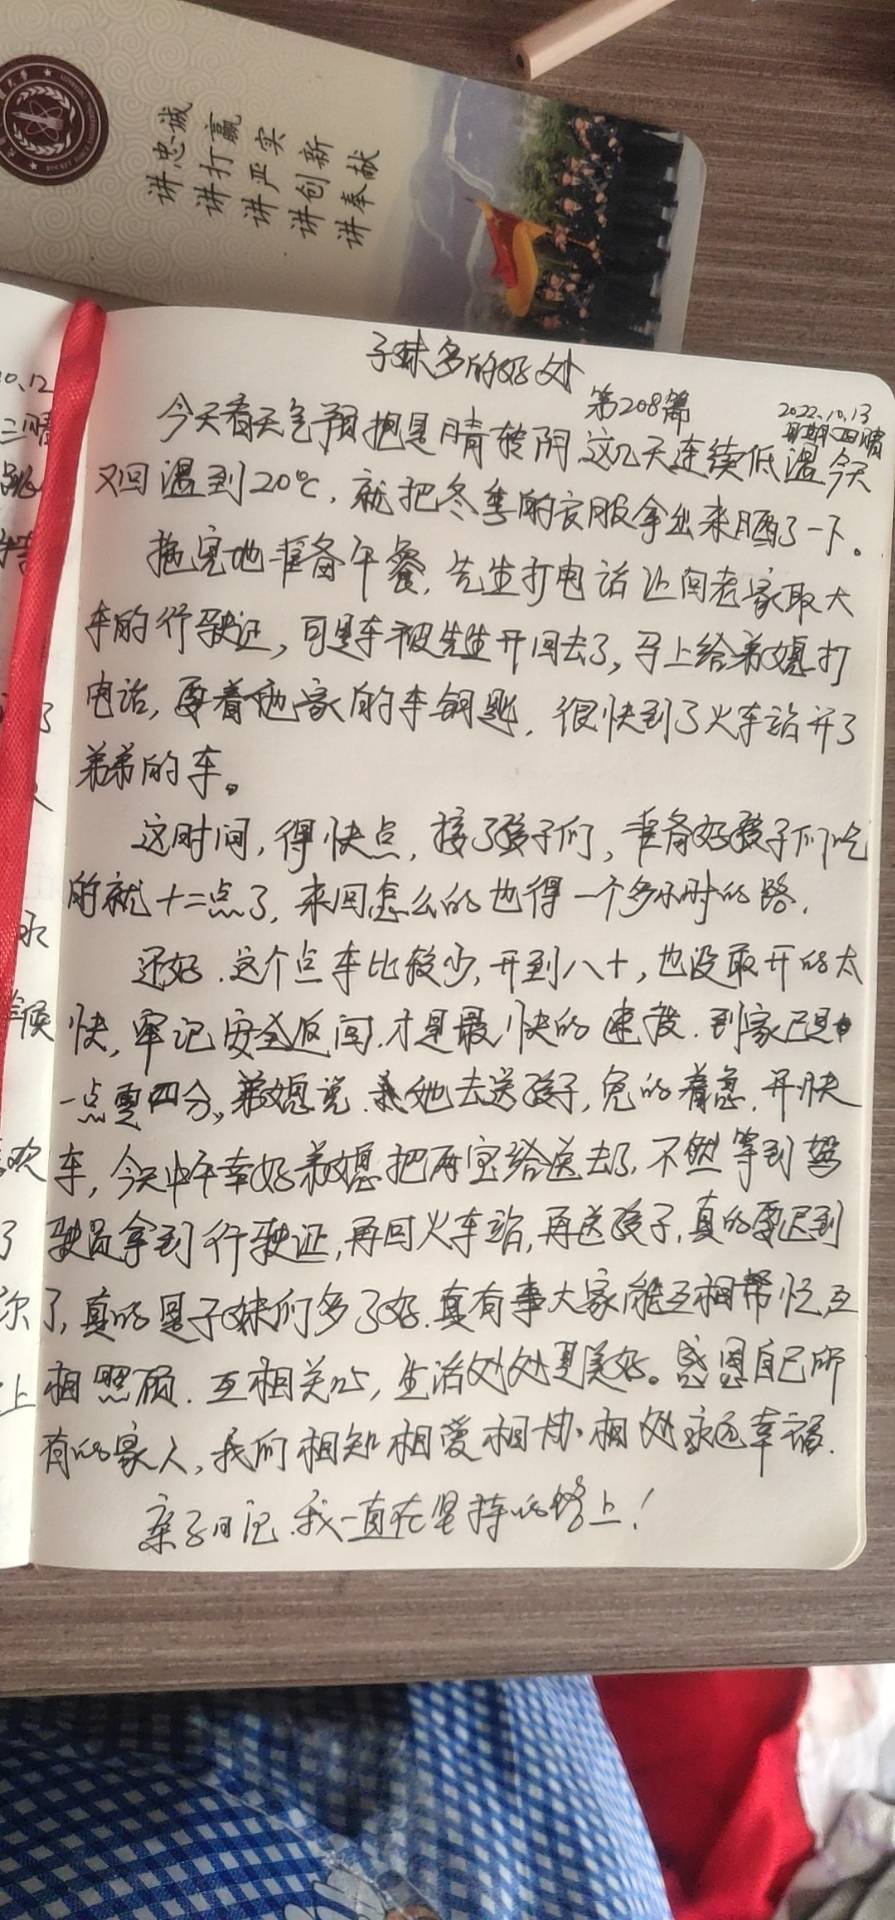 讲忠诚
讲打赢
讲严实
讲创新
讲奉献
子妹多的好处
第208篇
2022.10.13
星期四晴
今天看天气预报是晴转阴这几天连续低温今天
又回温到20℃，就把冬季的衣服拿出来晒了一下。
拖完地准备午餐，先生打电话让回老家取大
车的行驶证，可是车被先生开回去了，马上给弟媳打
电话，要着他家的车钥匙，很快到了火车站开了
弟弟的车。
这时间，得快点，接了孩子们，准备好孩子们吃
的就十二点了，来回怎么的也得一个多小时的路，
还好，这个点车比较少，开到八十，也没敢开的太
快，牢记安全返回，才是最快的速度，到家已是
一点零四分，弟媳说，她去送孩子，免的着急，开快
车，今天中午幸好弟媳把两宝给送去了，不然等到驾
驶员拿到行驶证，再回火车站，再送孩子，真的要迟到
了，真的是子妹们多了好，真有事大家能互相帮忙，互
相照顾，互相关心，生活处处更美好。感恩自己所
有的家人，我们相知相爱相协相处永远幸福.
亲子日记，我一直在坚持的路上！
0.12
三晴
候
欢
了
尔
上